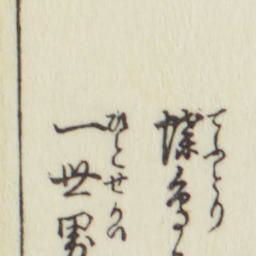 てふとり
蝶鳥
ひとせかい
一世界